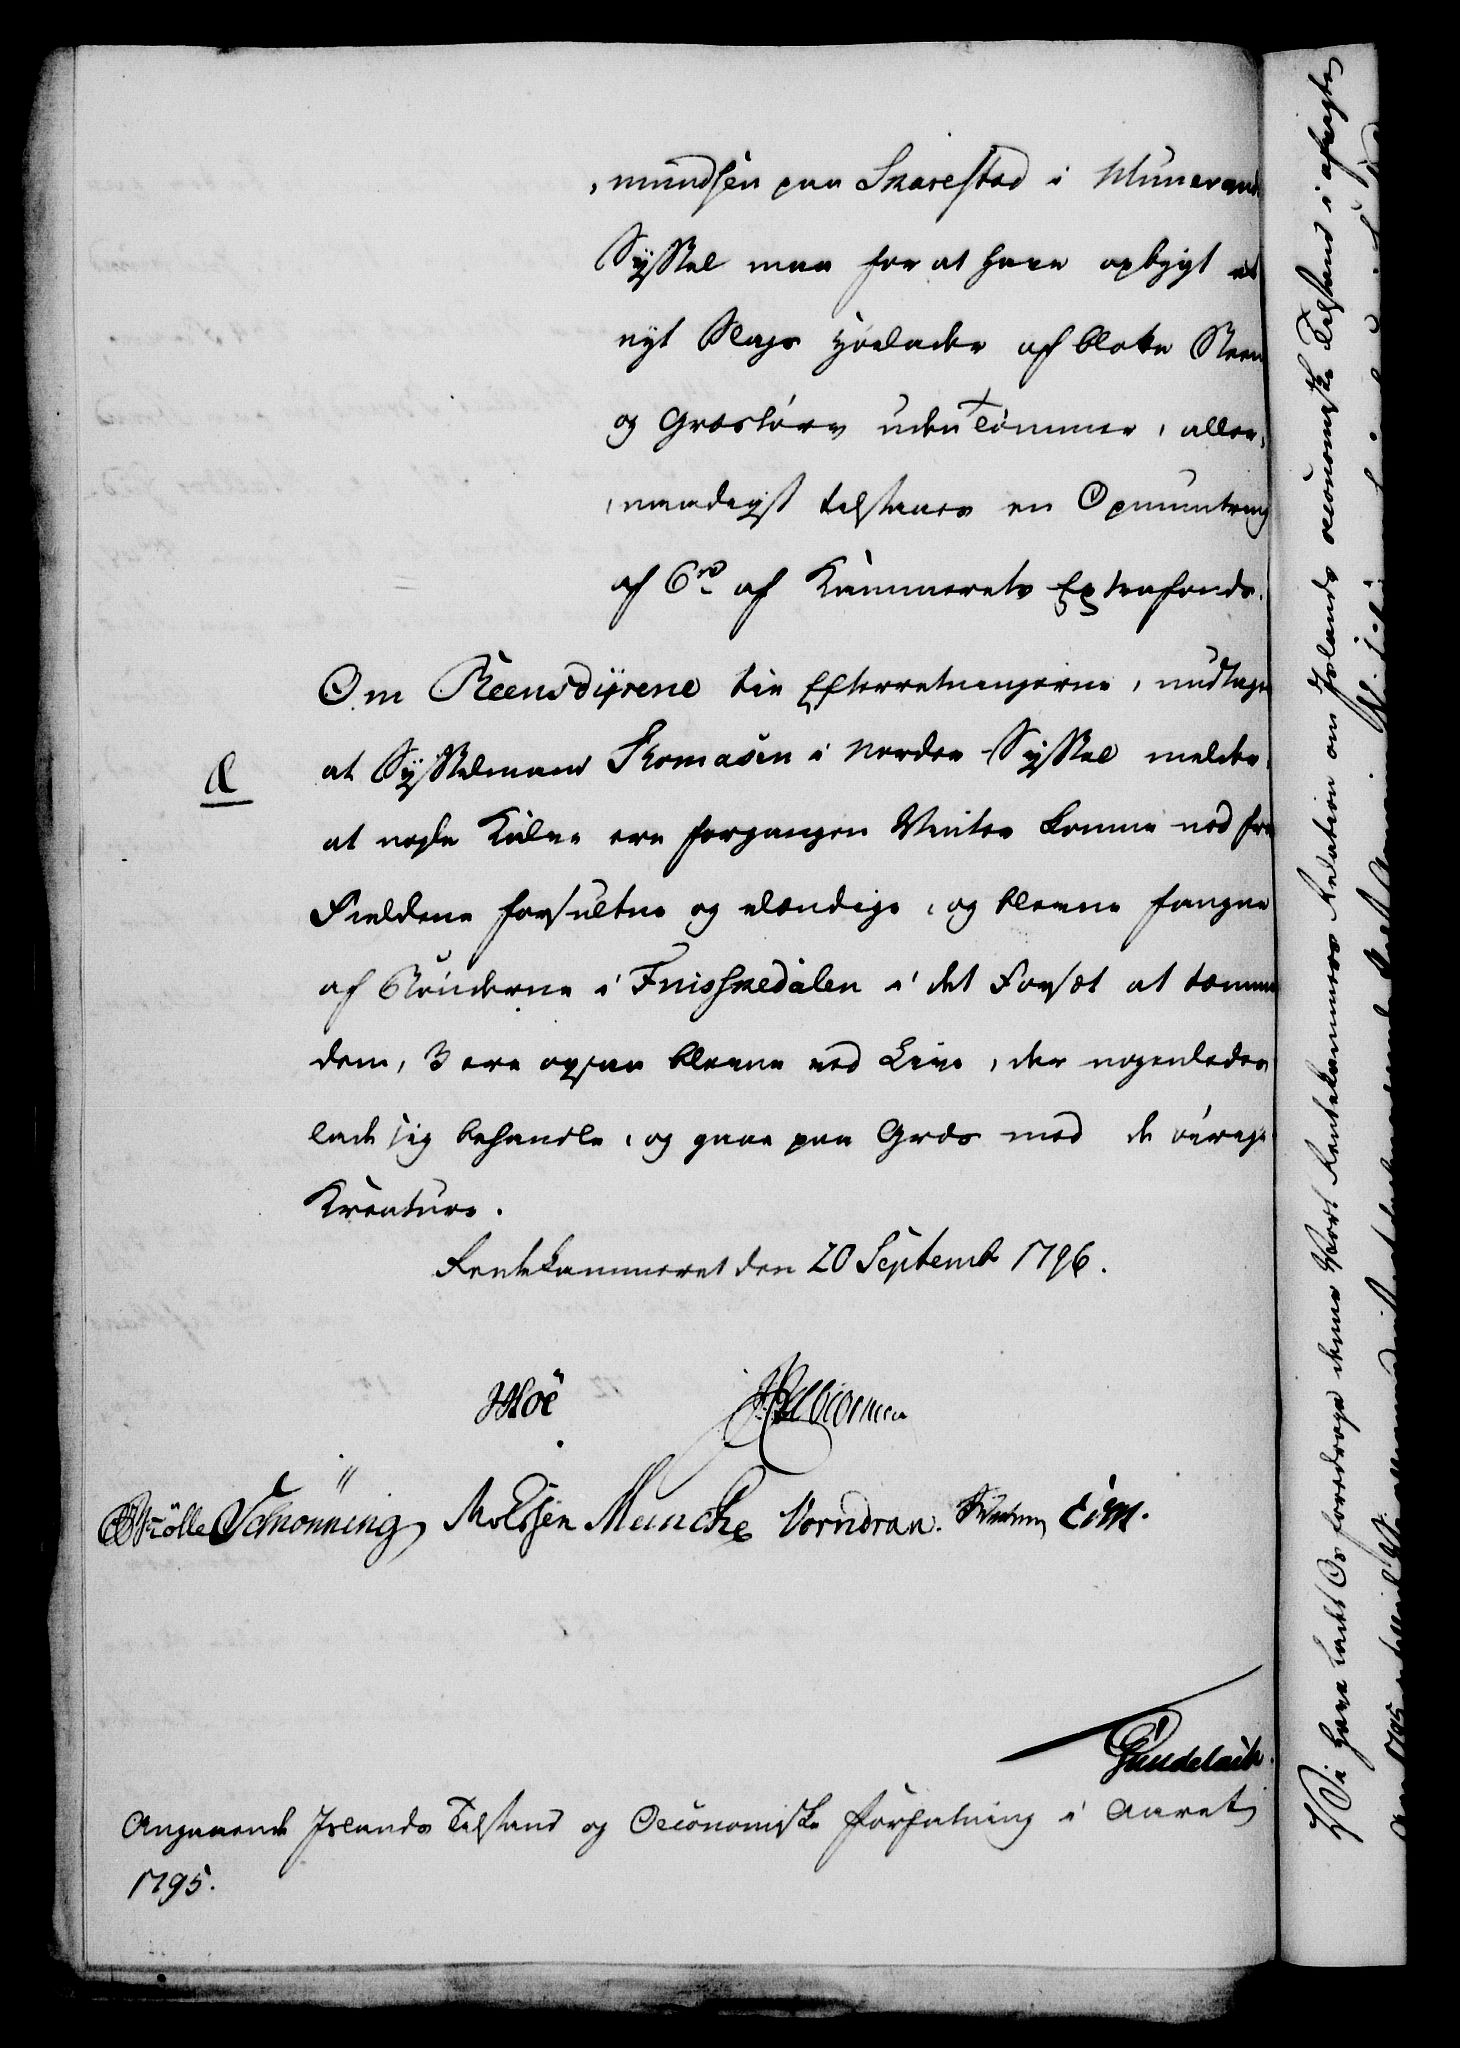 mundsen paa Skarestad i
Syssel maa for at have opbygt et
nyt Slags Høelader af blotte Steen
og Græstørv uden Tømmer, aller-
naadigst tilstaaes en Opmuntring
af 6 rd af Kammerets Extrafonds.
Om Reensdÿrene tie Efterretningerne, undtagen
at Sysselmand Thomasen i Norder-Syssel melder,
d
at nogle Kalve ere forgangen Vinter komne ned fra
Fieldene forsultne og elændige, og blevne fangne
af Bønderne i Fnioskedalen i det Forsæt at tæmme
dem, 3 ere ogsaa blevne ved Live, der nogenledes
lade sig behandle, og gaae paa Græs med de øvrige
Kreature.
Rentekammeret den 20 Septemb 1796.
Schönning Moldsen Muncke Vorndran. Eim.
Gundelach.
Angaaende Islands Tilstand og Oeconomiske Forfatning i Aaret
1795.
Vi have ladet Os foredrage denne Vort Rentekammers Relation om Islands oeconomiske Tilstand i afvigte